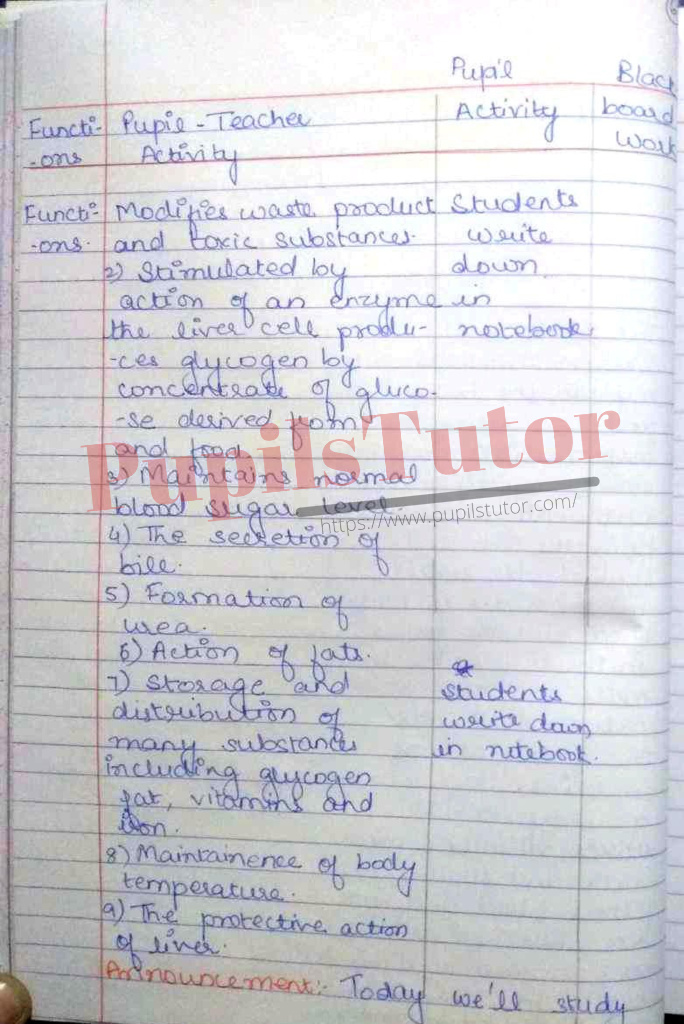 Pupil Black
Functi- Pupil-Teacher Activity board
-ons Activity Work
Functi- Modifies waste product Students
-ons. and toxic substances. write
2) Stimulated by down
action of an enzyme in
the liver cell produ- notebook.
-ces glycogen by
concentrate of gluco-
-se derived from
and food
3) Maintains normal
blood sugar level.
4) The secretion of
bile.
5) Formation of
urea.
6) Action of fats.
7) Storage and students
distribution of write down
many substances in notebook.
including glycogen
fat, vitamins and
iron.
8) Maintainence of body
temperature.
9) The protective action
of liver.
Announcement:- Today we'll study
PupilsTutor
https://www.pupilstutor.com/